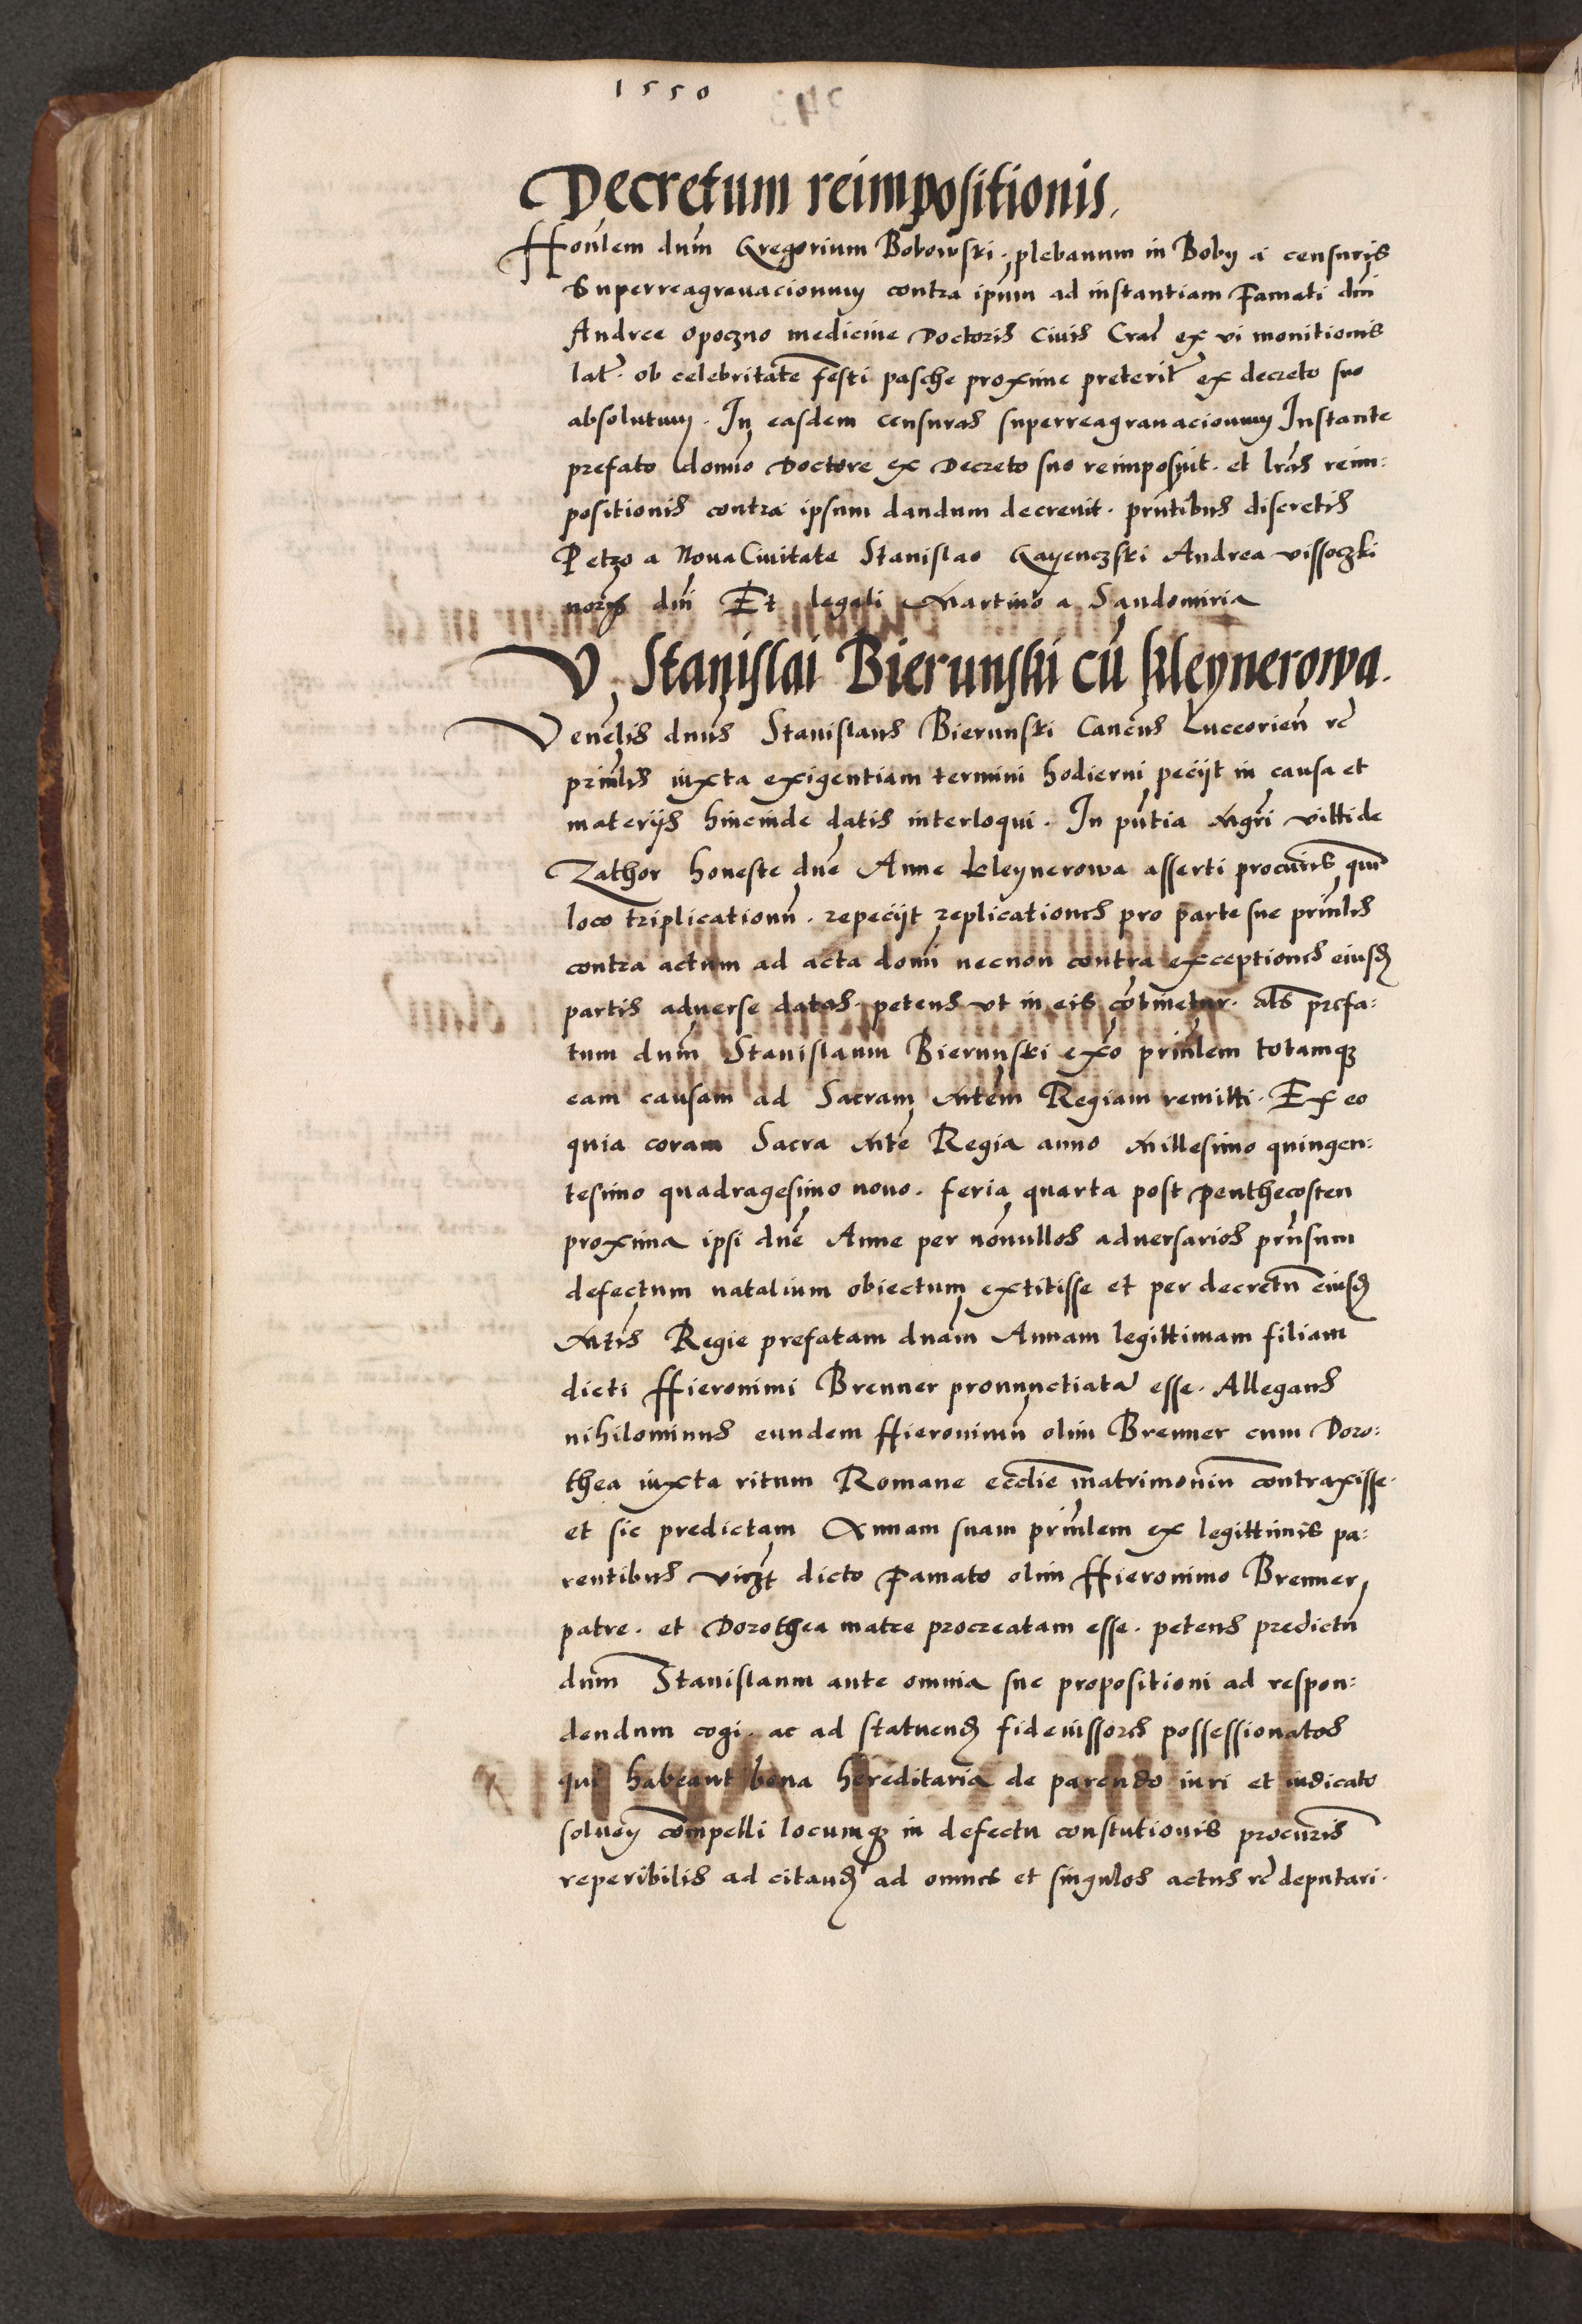 1550
Decretum reimpositionis.
Honlem dnm Gregorium Bobowski. plebanum in Boby a censuris
Superreagravacionum contra ipnm ad instantiam Famati dni
Andree Opoczno medicine Doctoris Civis Crac ex vi monitionis
lat. ob celebritate festi pasche proxime preterit ex decreto suo
absolutum. In easdem censuras superreagravacionum Instante
prefato domno Doctore ex Decreto suo reimposuit. et lras reim:
positionis contra ipsum dandum decrevit. pntibus discretis
Petro a Nova Civitate Stanislao Gayenczski Andrea vissoczki
dni Et legali Martino a Sandomiria
V. Stanislai Bierunski cu kleynerowa.
Venelis dnus Stanislaus Bierunski Cancus Luceorien rc
prinlis iuxta exigentiam termini hodierni peciit in causa et
materijs hincinde datis interloqui. In pntia Mgri vitti de
Zathor honeste dne Anne kleynerowa asserti procuris qui
loco triplicationu. repeciit replicationes pro parte sue prinlis
contra actum ad acta domi necnon contra exceptiones eiusd
partis adverse datas. petens ut in eis cotinetur. als prefa:
tum dnm Stanislaum Bierunski exo prinlem totamq
eam causam ad Sacram Mtem Regiam remitti. Ex eo
quia coram Sacra Mte Regia anno Millesimo quingen:
tesimo quadragesimo novo. feria quarta post penthecosten
proxima ipsi dne Anne per nonnullos adversarios prnsum
defectum natalium obiectum extitisse et per decretu eiusd
Mtis Regie prefatam dnam Annam legittimam filiam
dicti Hieronimi Brenner pronunctiata esse. Allegans
nihilominus eundem Hieronimu olim Brenner cum Doro:
thea iuxta ritum Romane ecclie matrimoniu contraxisse.
et sic predictam Annam suam prinlem ex legittimis pa:
rentibus vict dicto Famato olim Hieronimo Brenner
patre. et Dorothea matre procreatam esse. petens predictu
dnm Stanislaum ante omnia sue propositioni ad respon:
dendum cogi. ac ad statuend fideiussores possessionatos
qui habeant bona hereditaria de parendo iuri et iudicato
solvey compelli locumq in defectu constutionis procuris
reperibilis ad citand ad omnes et singulos actus rc deputari.